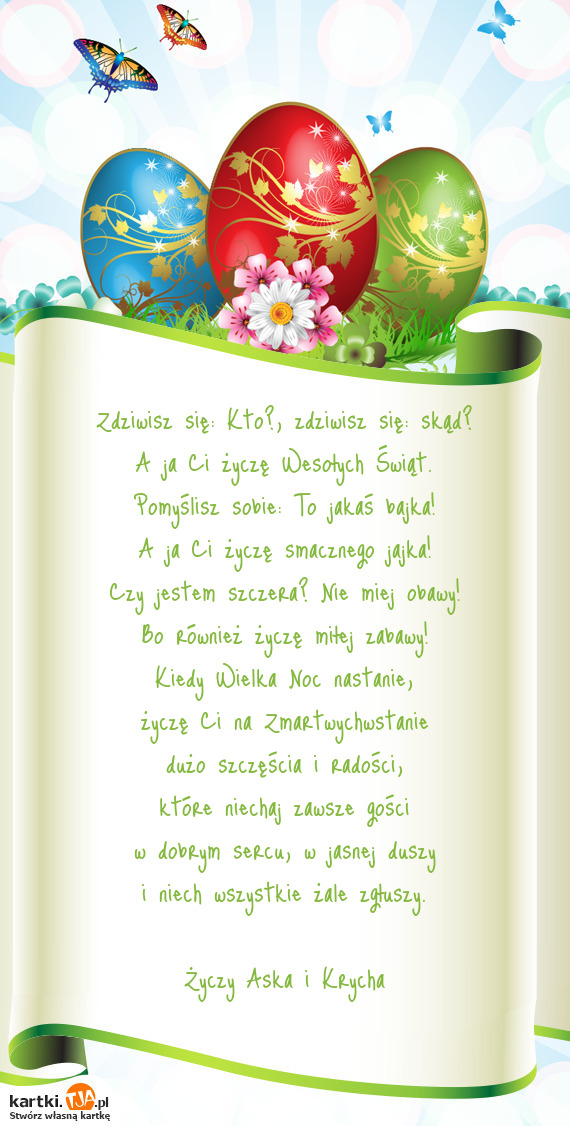 Zdziwisz się: Kto?, zdziwisz się: skąd?
A ja Ci życzę Wesołych Świąt.
Pomyślisz sobie: To jakaś bajka!
A ja Ci życzę smacznego jajka!
Czy jestem szczera? Nie miej obawy!
Bo również życzę miłej zabawy!
Kiedy Wielka Noc nastanie,
życzę Ci na Zmartwychwstanie
dużo szczęścia i radości,
które niechaj zawsze gości
w dobrym sercu, w jasnej duszy
i niech wszystkie żale zgłuszy.
Życzy Aska i Krycha
kartki.TJA.pl
Stwórz własną kartkę